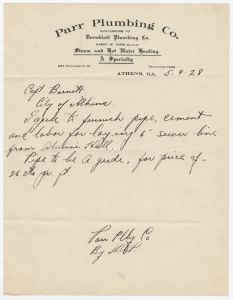 Parr Plumbing Co.
SUCCESSORS TO
Dornblatt Plumbing Co.
HARRY W. PARR
Steam and Hot Water Heating
A Specialty
TELEPHONE
ATHENS, GA. 5-9-28
Capt Barnett
City of Athens
I agree to furnish pipe, cement
and labor for laying 6" sewer line
from Alumni Hall.
Pipe to be A grade, for price of
26 ¢ pr ft.
Parr Plbg Co
By